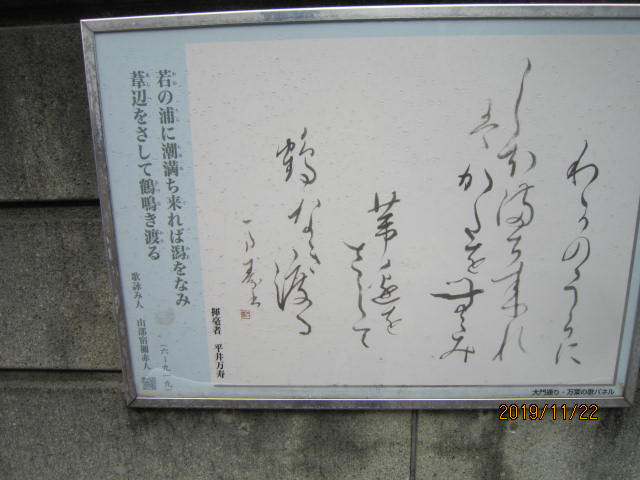 わかのうらに
しほ満ち来れ
は かたを無み
葦邊を
さして
鶴なき渡る
万寿書
若の浦に潮満ち来れば潟をなみ
葦辺をさして鶴鳴き渡る
歌詠み人 山部宿禰赤人
(六-九一九)
揮毫者 平井万寿
大門通り・万葉の歌パネル
2019/11/22